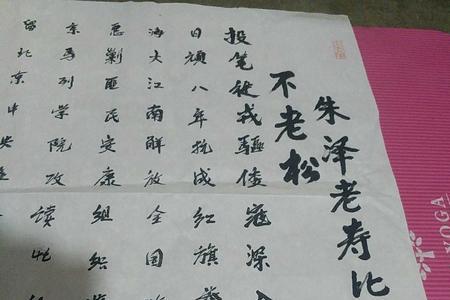 朱泽老寿比
不老松
投笔从戎驱倭寇深入
日顽八年抗战红旗
海大江南解放全国
恶剿匪民安康组绍
京马列学院攻读
留北京中央
YOGA